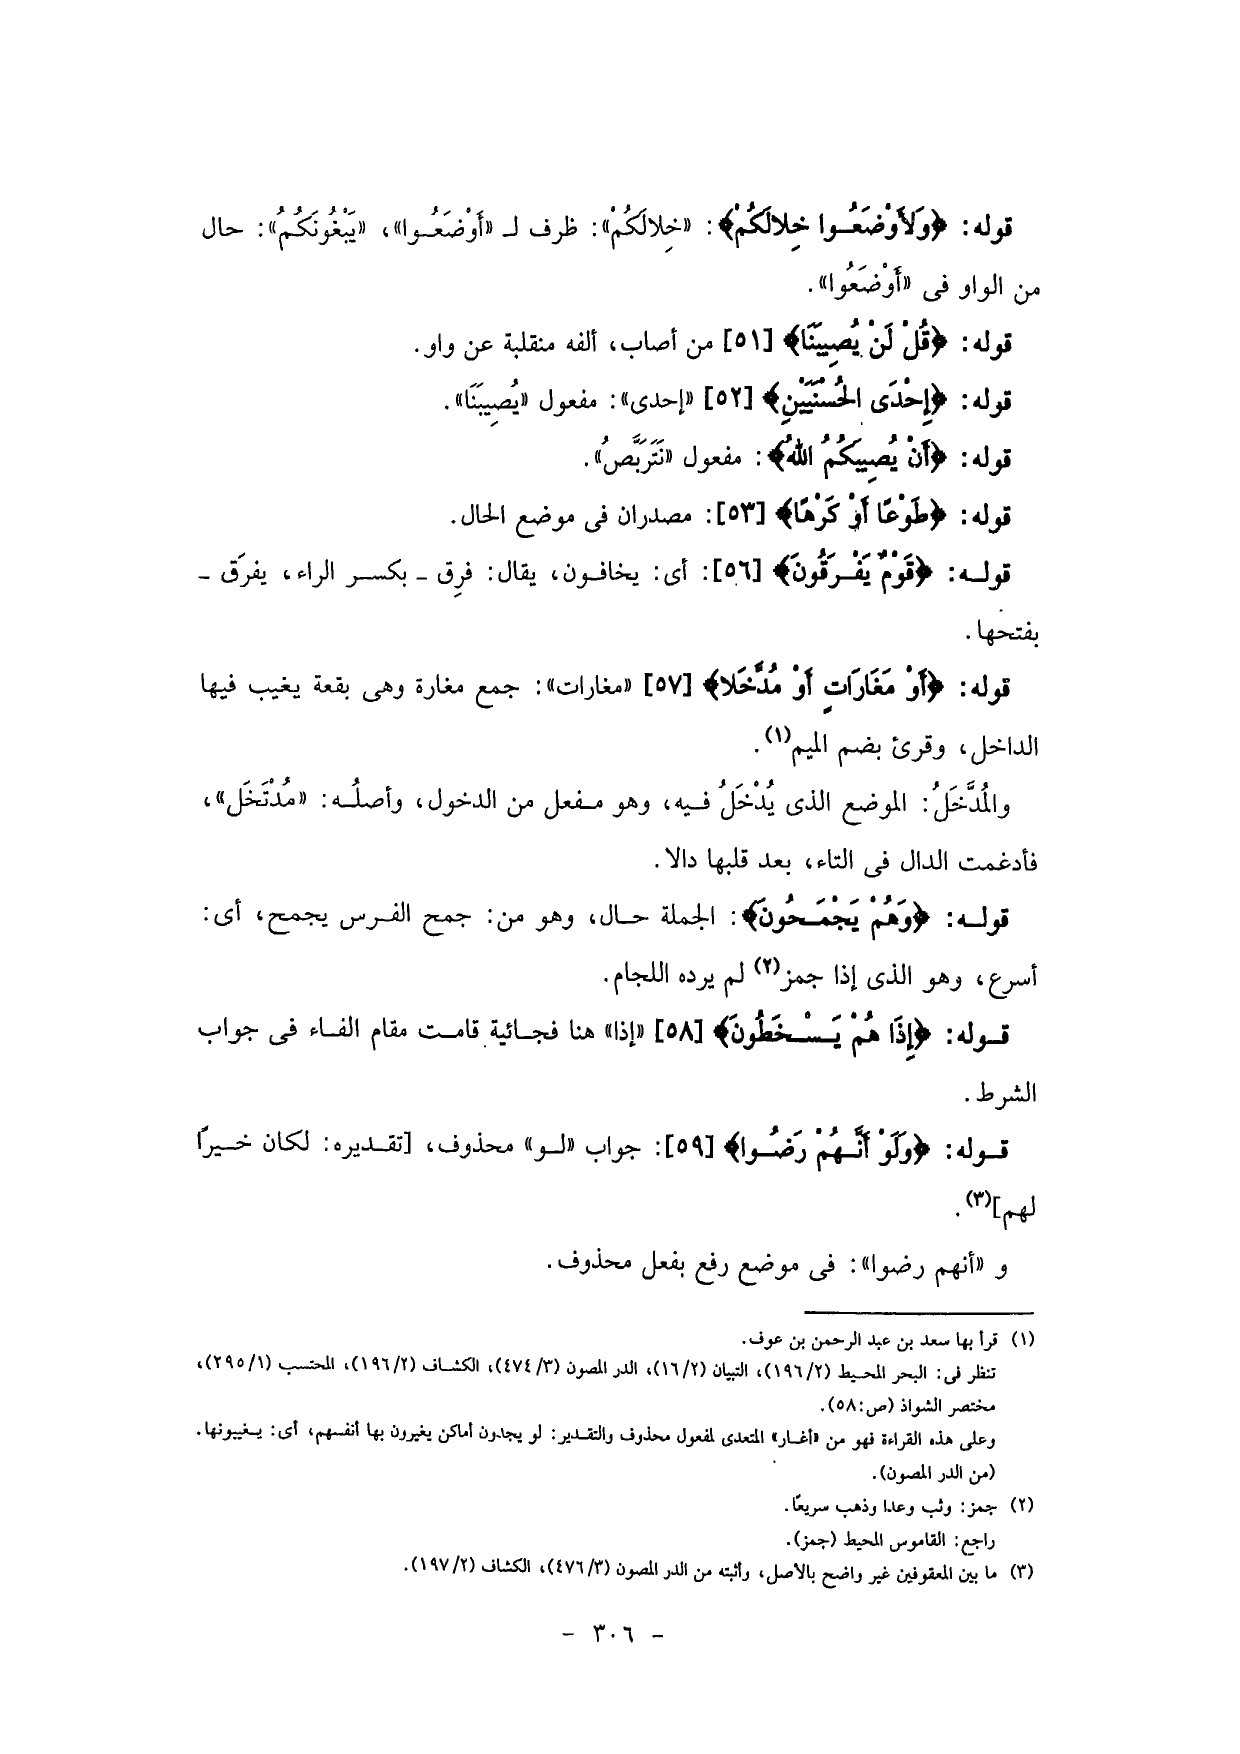 قوله: ﴿وَلأَوْضَعُوا خِلالَكُمْ﴾: «خِلالَكُمْ»: ظرف لـ «أَوْضَعُوا»، «يَبْغُونَكُمُ»: حال
من الواو فى «أَوْضَعُوا».
قوله: ﴿قُلْ لَنْ يُصِيبَنَا﴾ [٥١] من أصاب، ألفه منقلبة عن واو.
قوله: ﴿إِحْدَى الْحُسْنَيَيْنِ﴾ [٥٢] «إحدى»: مفعول «يُصِيبَنَا».
قوله: ﴿أَنْ يُصِيبَكُمُ اللَّهُ﴾: مفعول «نَتَرَبَّصُ».
قوله: ﴿طَوْعًا أَوْ كَرْهًا﴾ [٥٣]: مصدران فى موضع الحال.
قولـه: ﴿قَوْمٌ يَفْـرَقُونَ﴾ [٥٦]: أى: يخافـون، يقال: فرِق ـ بكسـر الراء، يفرَق ـ
بفتحها.
قوله: ﴿أَوْ مَغَارَاتٍ أَوْ مُدَّخَلا﴾ [٥٧] «مغارات»: جمع مغارة وهى بقعة يغيب فيها
الداخل، وقرئ بضم الميم(١).
والمُدَّخَلُ: الموضع الذى يُدْخَلُ فـيه، وهو مـفعل من الدخول، وأصلُـه: «مُدْتَخَل»،
فأدغمت الدال فى التاء، بعد قلبها دالا.
قولـه: ﴿وَهُمْ يَجْمَـحُونَ﴾: الجملة حـال، وهو من: جمح الفـرس يجمح، أى:
أسرع، وهو الذى إذا جمز(٢) لم يرده اللجام.
قـوله: ﴿إِذَا هُمْ يَـسْـخَطُونَ﴾ [٥٨] «إذا» هنا فـجـائية قامـت مقام الفـاء فى جواب
الشرط.
قـوله: ﴿وَلَوْ أَنَّـهُمْ رَضُـوا﴾ [٥٩]: جواب «لـو» محذوف، [تقـديره: لكان خـيرًا
لهم](٣).
و «أنهم رضوا»: فى موضع رفع بفعل محذوف.
(١) قرأ بها سعد بن عبد الرحمن بن عوف.
تنظر فى: البحر المحيط (١٩٦/٢)، التبيان (١٦/٢)، الدر المصون (٤٧٤/٣)، الكشاف (١٩٦/٢)، المحتسب (٢٩٥/١)،
مختصر الشواذ (ص:٥٨).
وعلى هذه القراءة فهو من «أغـار» المتعدى لمفعول محذوف والتقـدير: لو يجدون أماكن يغيرون بها أنفسهم، أى: يـغيبونها.
(من الدر المصون).
(٢) جمز: وثب وعدا وذهب سريعًا.
راجع: القاموس المحيط (جمز).
(٣) ما بين المعقوفين غير واضح بالأصل، وأثبته من الدر المصون (٤٧٦/٣)، الكشاف (١٩٧/٢).
- ٣٠٦ -